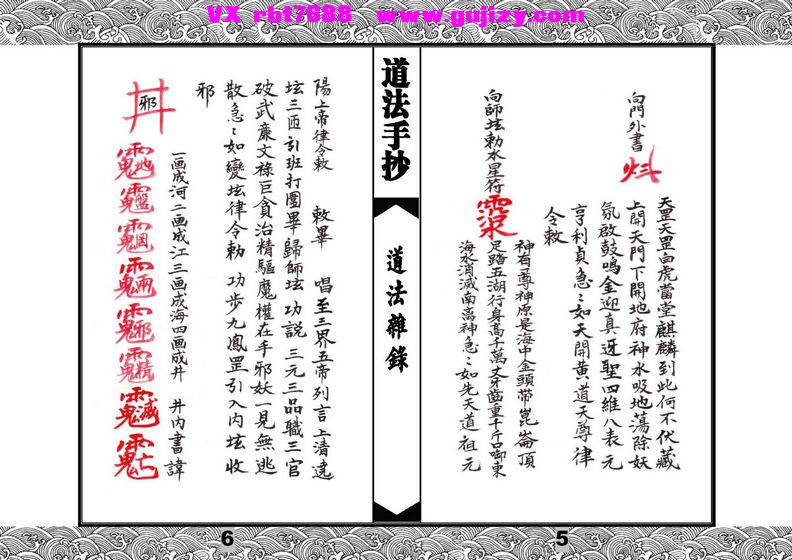 VX rbt7888 www.gujizy.com
向門外書
天罡天罡白虎當堂麒麟到此何不伏藏
上開天門下開地府神水吸地蕩除妖
氛啟鼓鳴金迎真迓聖四維八表元
亨利貞急〻如天開黄道天尊律
令敕
向師垓勅水星符
神有尊神原是海中金頭帶崑崙頂
足踏五湖行身高千萬丈牙齒重千斤口啣東
海水消滅南离神急〻如先天道祖元
5
道法手抄
道法雜錄
陽上帝律令敕 敕畢 唱至三界五帝列言上清遠
垓三匝引班打團畢歸師垓 功説 三元三品職三官
破武廉文祿巨貪治精驅魔權在手邪妖一見無逃
散急〻如變垓律令勅 功步九鳳罡引入内垓收
邪
邪
一画成河二画成江三画成海四画成井 井内書諱
6